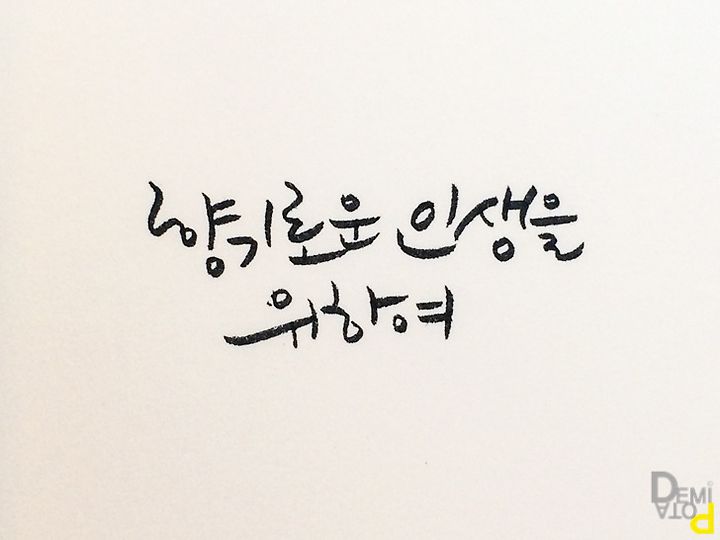 향기로운 인생을
위하여
DEMI
POTA